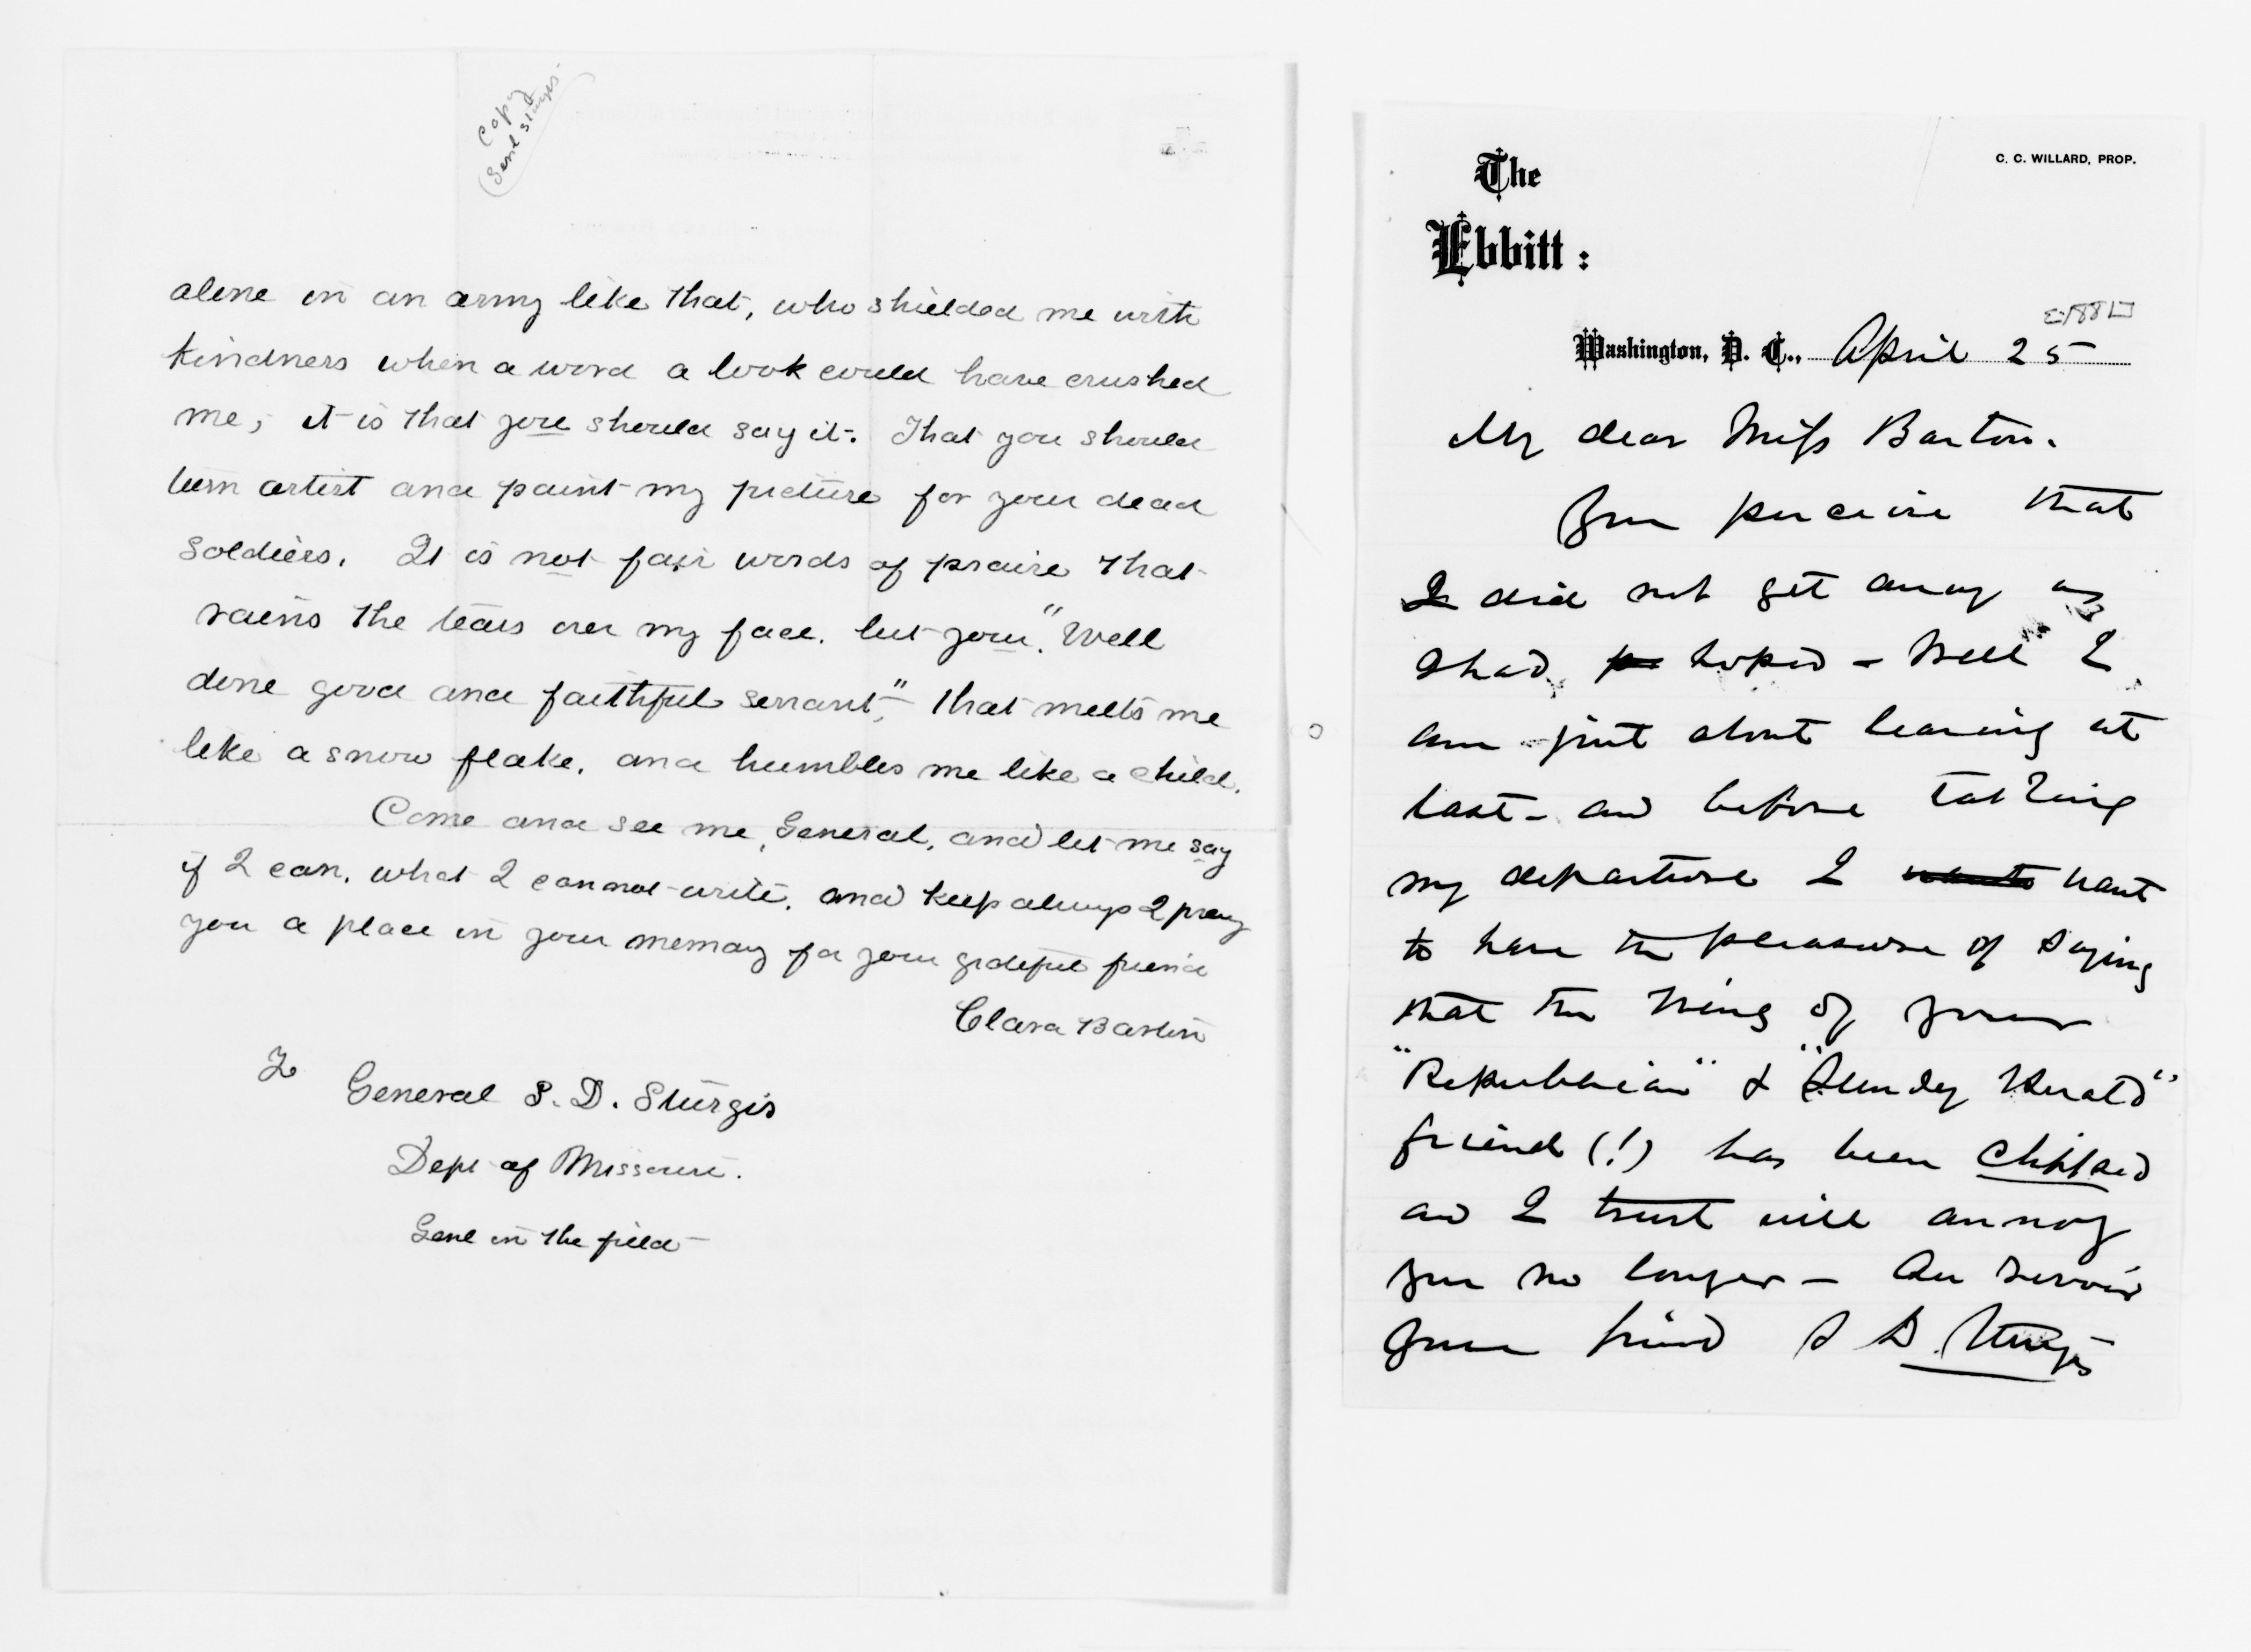 Copy
Genl Sturges
alone in an army like that, who shielded me with
kindness when a word a look could have crushed
me; it is that you should say it. That you should
turn artist and paint my picture for your dead
soldiers. It is not fair words of praise that
rains the tears over my face. but your "Well
done good and faithful servant", that melts me
like a snow flake. and humbles me like a child.
Come and see me, General, and let me say
if I can. what I cannot write. and keep always I pray
you a place in your memory for your grateful friend
Clara Barton
To
General S. D. Sturgis
Dept of Missouri.
Genl in the field
The
Ebbitt:
C. C. WILLARD, PROP.
Washington, D. C., April 25
My dear Miss Barton.
You perceive that
I did not get away as
I had hoped - Well I
am just about leaving at
last - and before taking
my departure I want
to have the pleasure of saying
that the wing of your
"Republican" & "Sunday Herald"
friend (!) has been clipped
and I trust will annoy
you no longer - Au revoir
Your friend S D. Sturgis